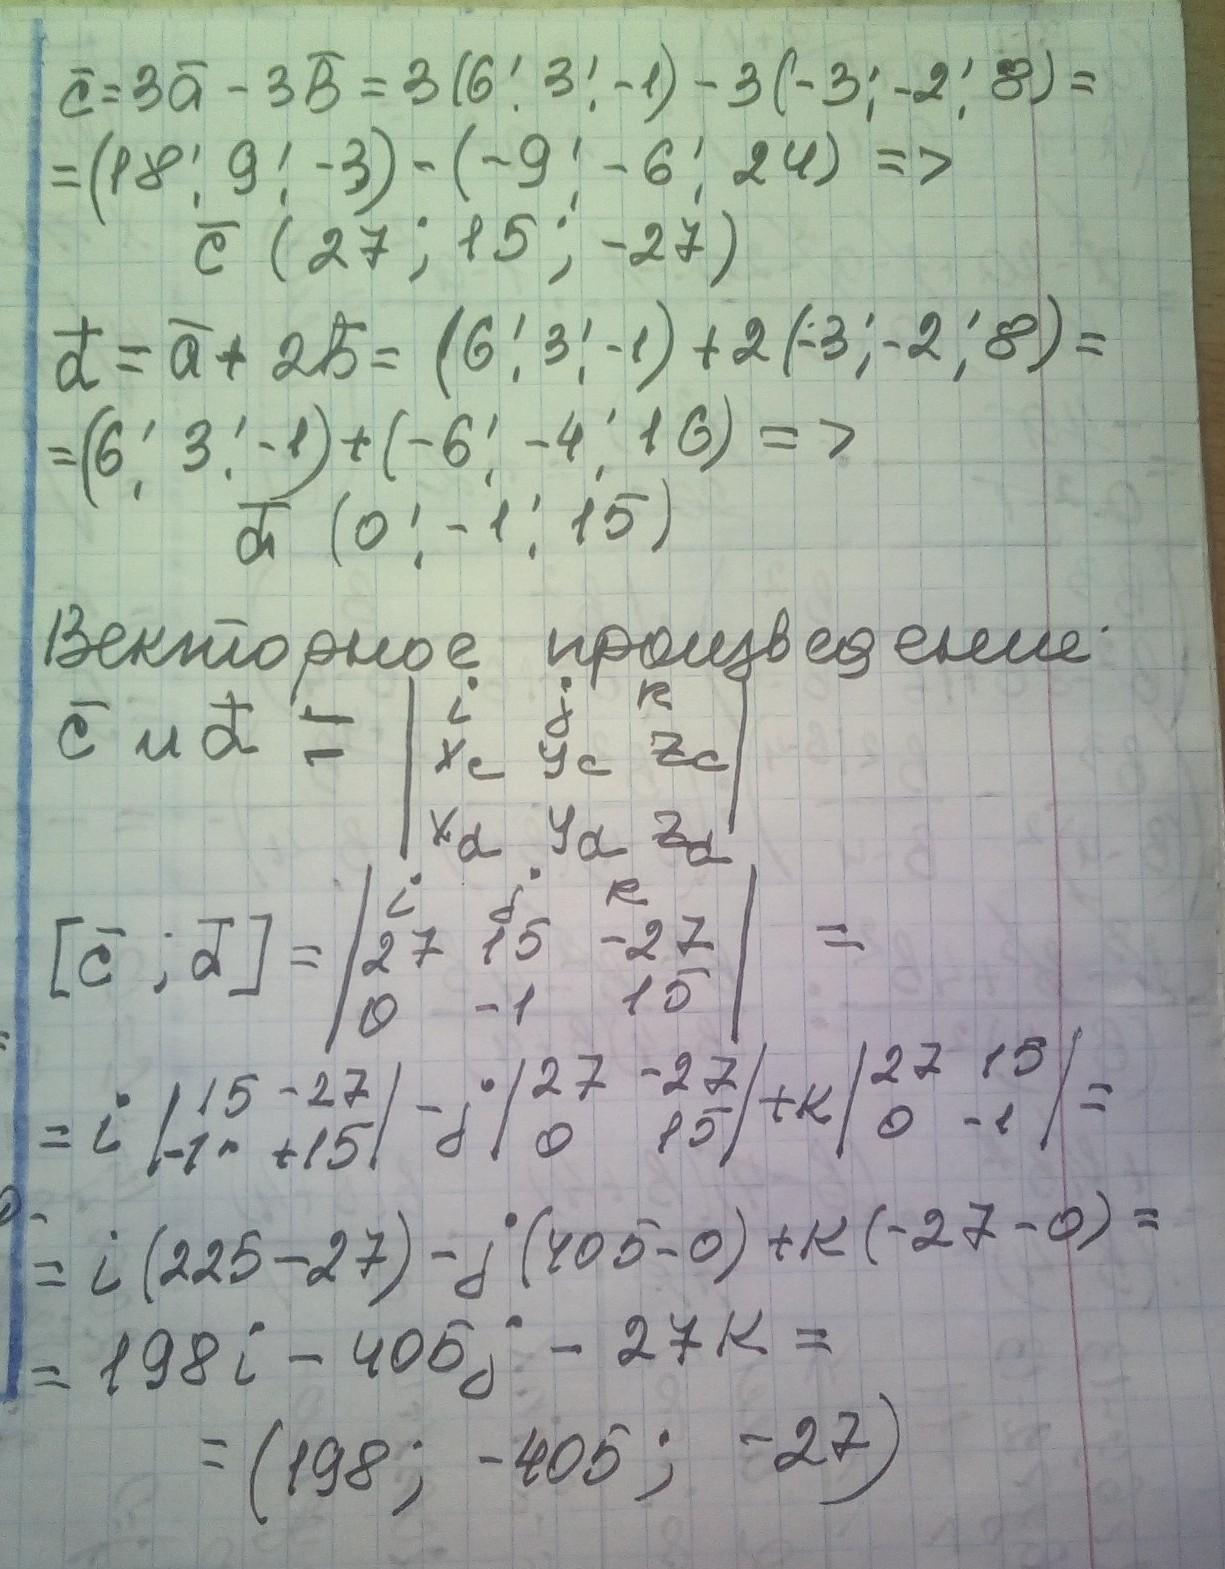 c̄ = 3ā - 3b̄ = 3(6; 3; -1) - 3(-3; -2; 8) =
= (18; 9; -3) - (-9; -6; 24) =>
c̄ (27; 15; -27)
d̄ = ā + 2b̄ = (6; 3; -1) + 2(-3; -2; 8) =
= (6; 3; -1) + (-6; -4; 16) =>
d̄ (0; -1; 15)
Векторное произведение:
c̄ и d̄ = | i j k |
| xc yc zc |
| xd yd zd |
[c̄ ; d̄] = | i j k |
| 27 15 -27 | =
| 0 -1 15 |
= i | 15 -27 | - j | 27 -27 | + k | 27 15 | =
| -1 +15 | | 0 15 | | 0 -1 |
= i (225 - 27) - j (405 - 0) + k (-27 - 0) =
= 198i - 405j - 27k =
= (198; -405; -27)